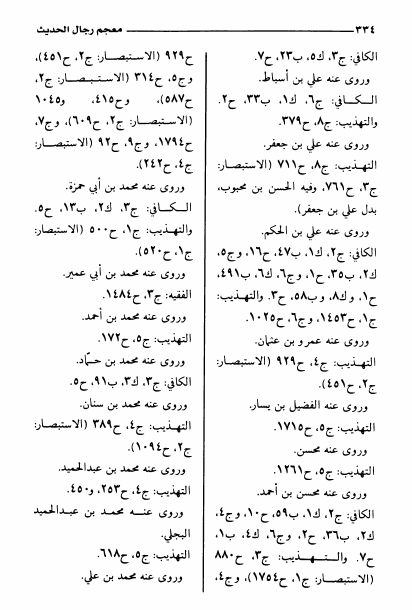 ٣٣٤ معجم رجال الحديث
الكافي: ج٣، ك٥، ب٢٣، ح٧.
وروى عنه علي بن أسباط.
الـكـافي: ج٦، ك١، ب٣٣، ح٢.
والتهذيب: ج٨، ح٣٧٩.
وروى عنه علي بن جعفر.
التهذيب: ج٨، ح٧١١ (الاستبصار:
ج٣، ح٧٦١، وفيه الحسن بن محبوب،
بدل علي بن جعفر).
وروى عنه علي بن الحكم.
الكافي: ج٢، ك١، ب٤٧، ح١٦، وج٥،
ك٢، ب٣٥، ح١، وج٦، ك٦، ب٤٩١،
ح١، وك٨، وب٥٨، ح٣. والتهذيب:
ج١، ح١٤٥٣، وج٦، ح١٠٢٥.
وروى عنه عمرو بن عثمان.
التهذيب: ج٤، ح٩٢٩ (الاستبصار:
ج٢، ح٤٥١).
وروى عنه الفضيل بن يسار.
التهذيب: ج٥، ح١٧١٥.
وروى عنه محسن.
التهذيب: ج٥، ح١٢٦١.
وروى عنه محسن بن أحمد.
الكافي: ج٢، ك١، ب٥٩، ح١٠، وج٤،
ك٢، ب٣٦، ح٢، وج٦، ك٤، ب١،
ح٧. والـتـهـذيـب: ج٣، ح٨٨٠
(الاستبصار: ج١، ح١٧٥٤)، وج٤،
ح٩٢٩ (الاستبصار: ج٢، ح٤٥١)،
وج٥، ح٣١٤ (الاسـتـبـصار: ج٢،
ح٥٨٧)، وح٤١٥، و١٠٤٥
(الاستبصار: ج٢، ح٦٠٩)، وج٧،
ح١٧٩٤، وج٩، ح٩٢ (الاستبصار:
ج٤، ح٢٤٢).
وروى عنه محمد بن أبي حمزة.
الـكـافي: ج٣، ك٢، ب١٣، ح٥.
والتهذيب: ج١، ح٥٠٠ (الاستبصار:
ج١، ح٥٢٠).
وروى عنه محمد بن أبي عمير.
الفقيه: ج٣، ح١٤٨٤.
وروى عنه محمد بن أحمد.
التهذيب: ج٥، ح١٧٢.
وروى عنه محمد بن حـمّاد.
الكافي: ج٣، ك٣، ب٩١، ح٥.
وروى عنه محمد بن سنان.
التهـذيب: ج٤، ح٣٨٩ (الاستبصار:
ج٢، ح١٠٩٤).
وروى عنه محمد بن عبدالحميد.
التهذيب: ج٤، ح٢٥٣، و٤٥٠.
وروى عنـه محمد بن عبدالحميد
البجلي.
التهذيب: ج٥، ح٦١٨.
وروى عنه محمد بن علي.